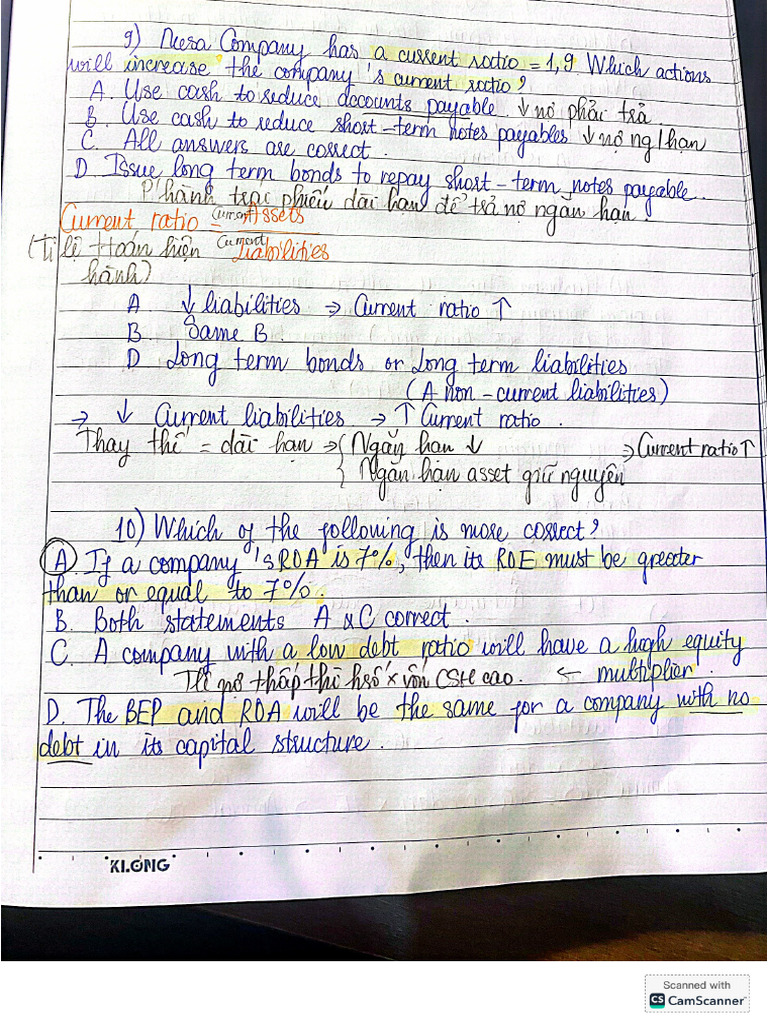 9) Mesa Company has a current ratio = 1,9. Which actions
will increase the company's current ratio?
A. Use cash to reduce accounts payable ↓ nợ phải trả.
B. Use cash to reduce short-term notes payables ↓ nợ ng/hạn
C. All answers are correct.
D. Issue long term bonds to repay short-term notes payable.
P'hành trái phiếu dài hạn để trả nợ ngắn hạn.
Current ratio = Current Assets
Current Liabilities
(Tỉ lệ thoán hiện
hành)
A ↓ liabilities → Current ratio ↑
B. Same B.
D Long term bonds or Long term liabilities
(A non-current liabilities)
→ ↓ Current liabilities → ↑ Current ratio.
Thay thế = dài hạn → { Ngắn hạn ↓ → Current ratio ↑
{ Ngắn hạn asset giữ nguyên
10) Which of the following is more correct?
A. If a company's ROA is 7%, then its ROE must be greater
than or equal to 7%.
B. Both statements A & C correct.
C. A company with a low debt ratio will have a high equity
Tỉ nợ thấp thì hsố x vốn CSH cao. ← multiplier.
D. The BEP and ROA will be the same for a company with no
debt in its capital structure.
KLONG
Scanned with
CS CamScanner